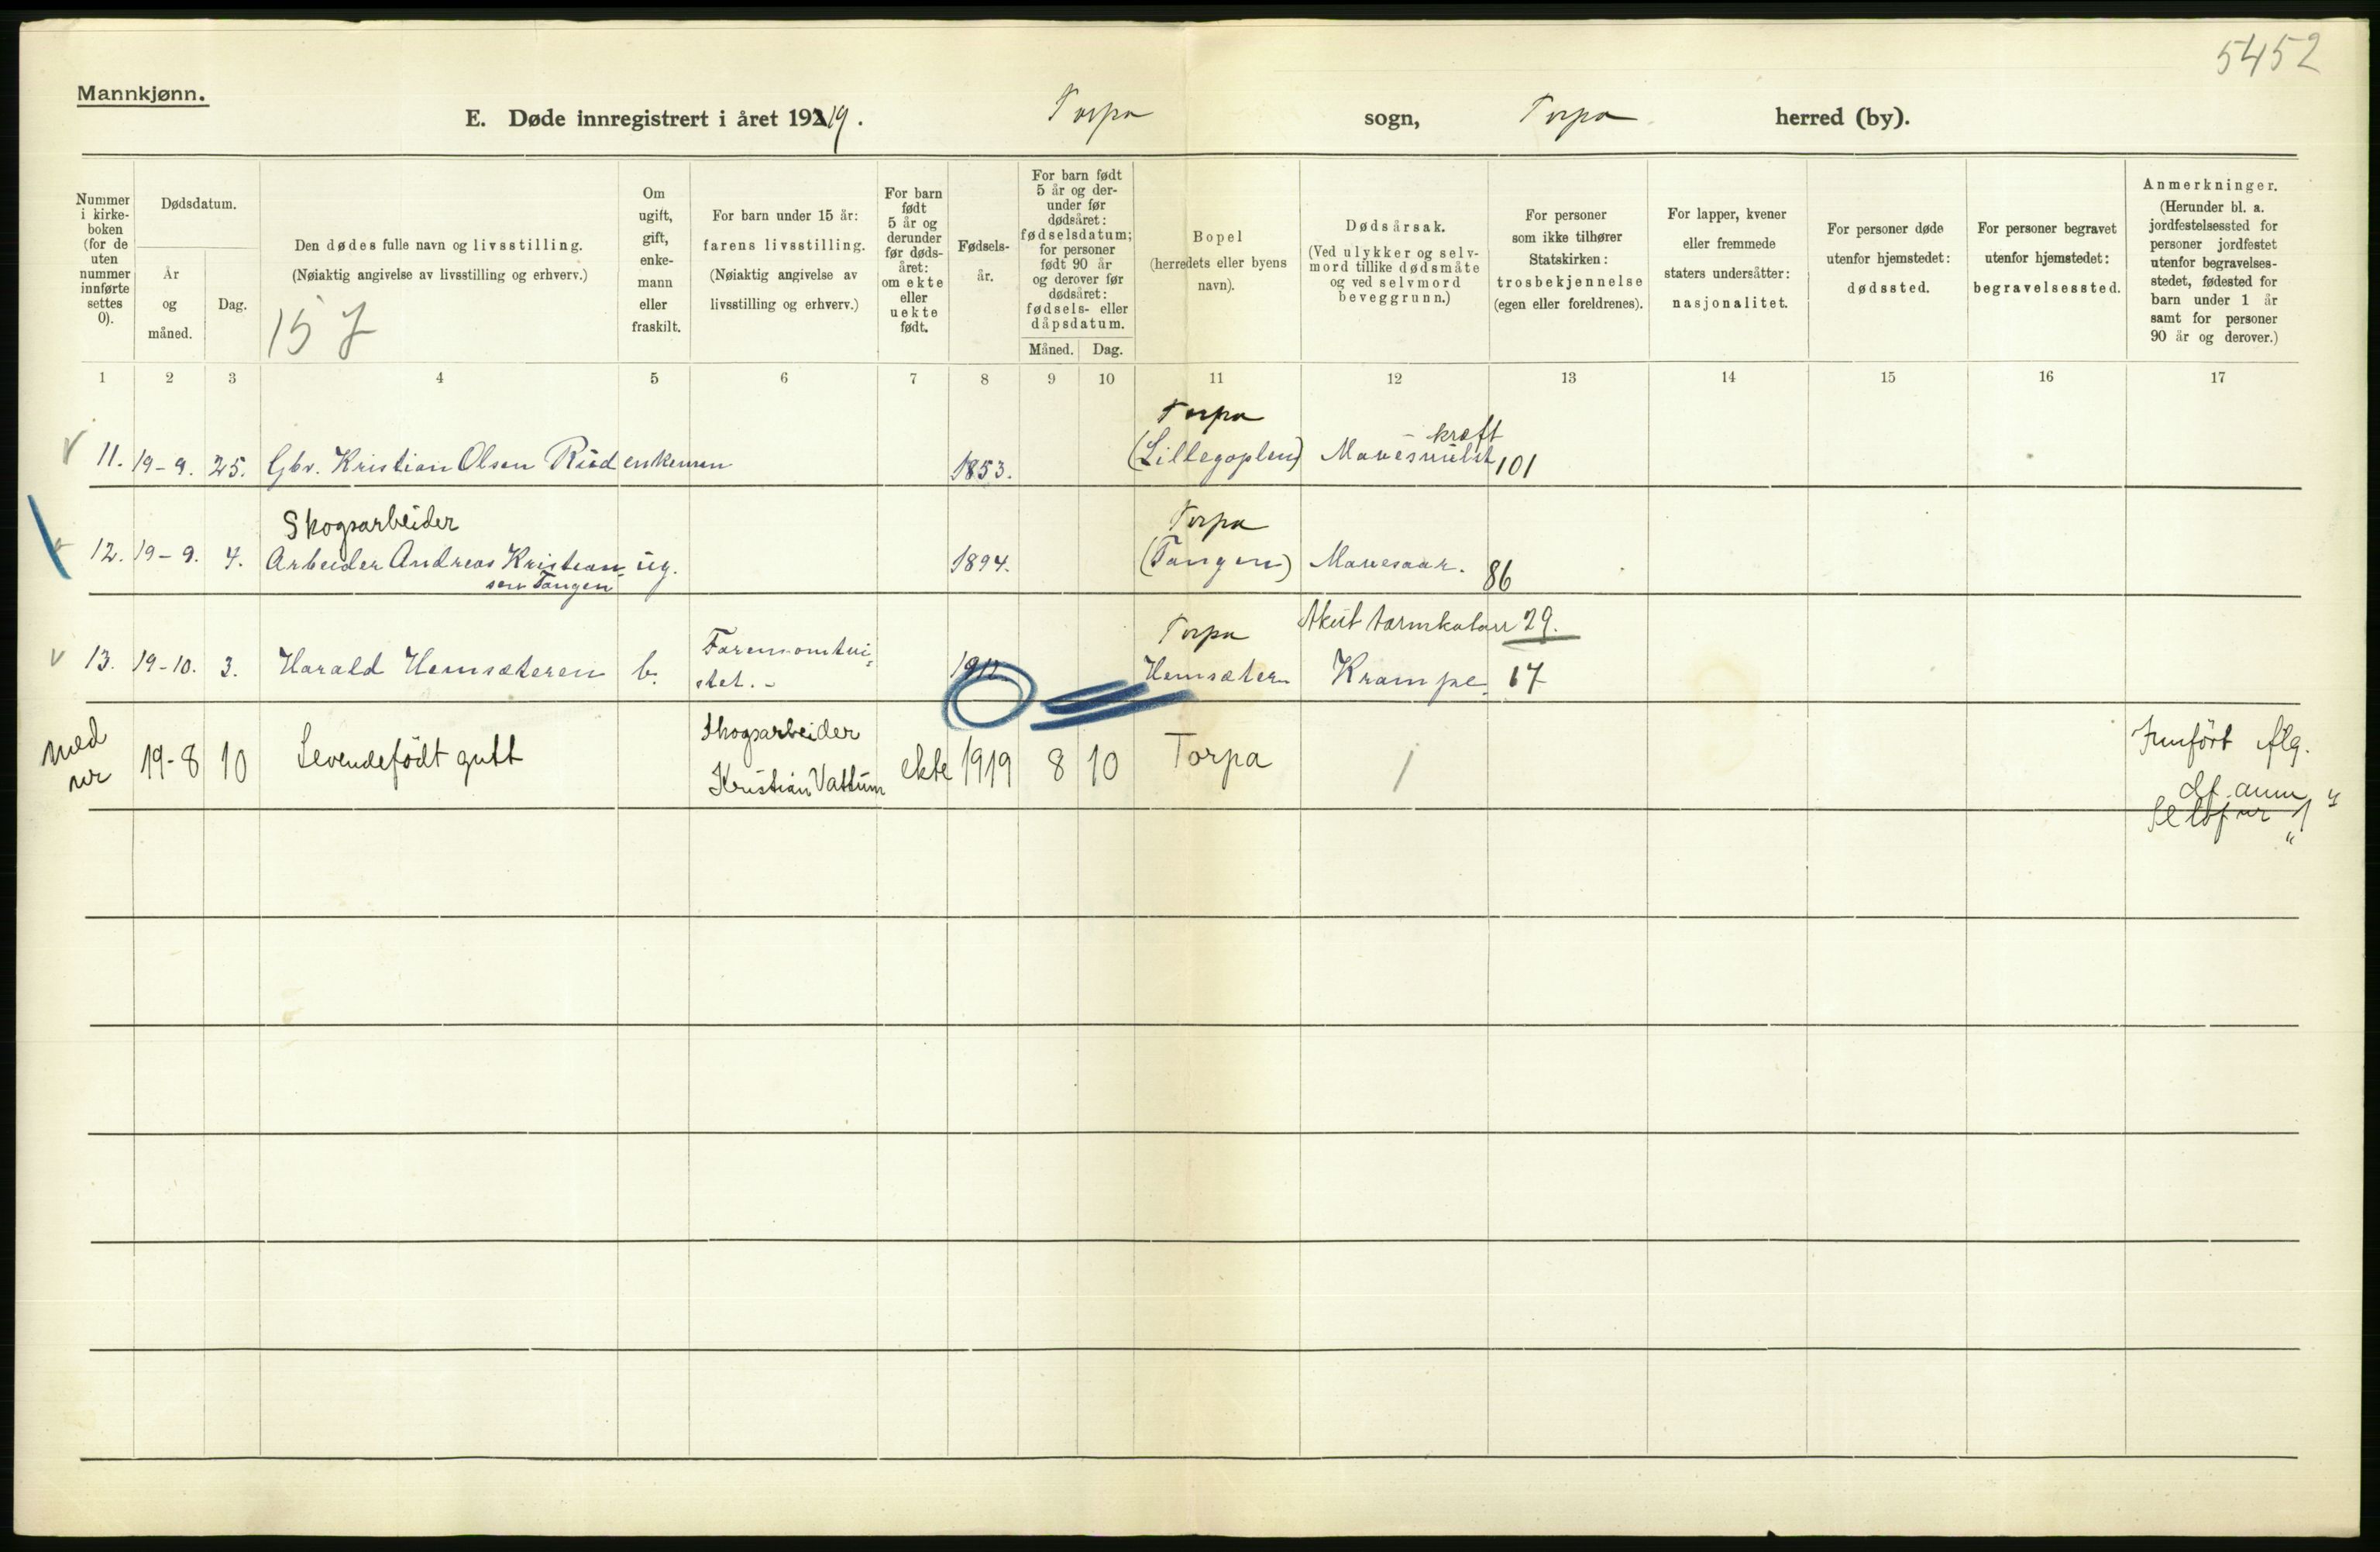 5452
Mannkjønn.
E. Døde innregistrert i året 19219. Torpa sogn, Torpa herred (by).
Nummer
i kirke-
boken
(for de
uten
nummer
innførte
settes
0).
Dødsdatum.
År
og
måned.
Dag.
Den dødes fulle navn og livsstilling.
(Nøiaktig angivelse av livsstilling og erhverv.)
157
Om
ugift,
gift,
enke-
mann
eller
fraskilt.
For barn under 15 år:
farens livsstilling.
(Nøiaktig angivelse av
livsstilling og erhverv.)
For barn
født
5 år og
derunder
før døds-
året:
om ekte
eller
uekte
født.
Fødsels-
år.
For barn født
5 år og der-
under før
dødsåret:
fødselsdatum;
for personer
født 90 år
og derover før
dødsåret:
fødsels- eller
dåpsdatum.
Måned. Dag.
Bopel
(herredets eller byens
navn).
Dødsårsak.
(Ved ulykker og selv-
mord tillike dødsmåte
og ved selvmord
beveggrunn.)
For personer
som ikke tilhører
Statskirken:
trosbekjennelse
(egen eller foreldrenes).
For lapper, kvener
eller fremmede
staters undersåtter:
nasjonalitet.
For personer døde
utenfor hjemstedet:
dødssted.
For personer begravet
utenfor hjemstedet:
begravelsessted.
Anmerkninger.
(Herunder bl. a.
jordfestelsessted for
personer jordfestet
utenfor begravelses-
stedet, fødested for
barn under 1 år
samt for personer
90 år og derover.)
1 2 3 4 5 6 7 8 9 10 11 12 13 14 15 16 17
Torpa
kræft
11. 19-9. 25. Gbr. Kristian Olsen Rud enkemn 1853. (Lillegoplen) Mavesvulst 101
Skogsarbeider Torpa
12. 19-9. 4. Arbeider Andreas Kristian- ug. 1894. (Tangen) Mavesaar. 86
sen Tangen
Farens omtvi- Torpa Akut tarmkatarr 29.
13. 19-10. 3. Harald Hemsæteren b. stet. - 1912 Hemsætern Krampe. 17
Skogsarbeider Innført flg.
med
nr 19-8 10 Levendefödt gutt Kristian Vattum ekte 1919 8 10 Torpa /
df. anm
nr 1